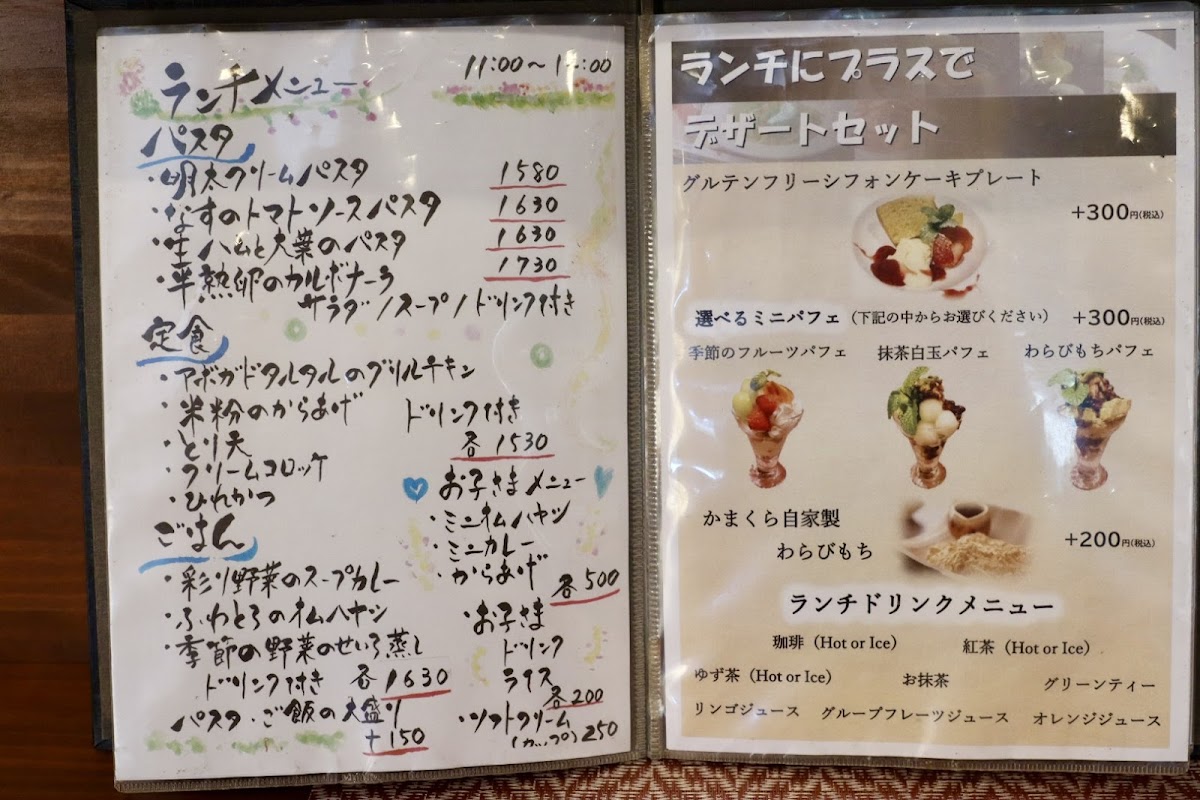 ランチメニュー 11:00〜14:00
パスタ
・明太クリームパスタ 1580
・なすのトマトソースパスタ 1630
・生ハムと大葉のパスタ 1630
・半熟卵のカルボナーラ 1730
サラダ/スープ/ドリンク付き
定食
・アボガドタルタルのグリルチキン
・米粉のからあげ
・とり天
・クリームコロッケ
・ひれかつ
ドリンク付き
各1530
ごはん
・彩り野菜のスープカレー
・ふわとろのオムハヤシ
・季節の野菜のせいろ蒸し
ドリンク付き 各1630
パスタ・ご飯の大盛り
+150
お子さまメニュー
・ミニオムハヤシ
・ミニカレー
・からあげ
各500
・お子さま
ドリンク
ライス
各200
・ソフトクリーム
(カップ)250
ランチにプラスで
デザートセット
グルテンフリーシフォンケーキプレート
+300円(税込)
選べるミニパフェ(下記の中からお選びください) +300円(税込)
季節のフルーツパフェ 抹茶白玉パフェ わらびもちパフェ
かまくら自家製
わらびもち
+200円(税込)
ランチドリンクメニュー
珈琲(Hot or Ice) 紅茶(Hot or Ice)
ゆず茶(Hot or Ice) お抹茶 グリーンティー
リンゴジュース グループフレーツジュース オレンジジュース